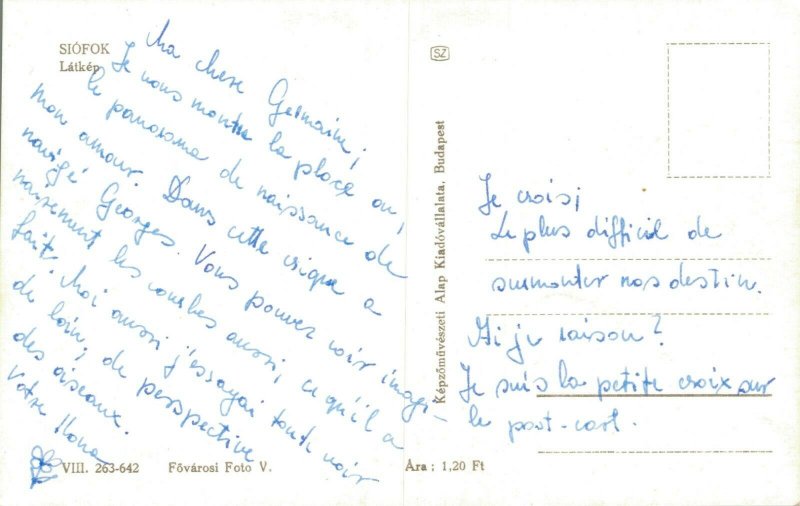 SIÓFOK
Látkép
Ma chere Germaine,
Je vous montre la place ou,
le panorama de naissance de
mon amour. Dans cette crique a
navigé Georges. Vous pouvez voir imagi-
nairement les courbes aussi, ce qu'il a
fait. Moi aussi j'essayai tout voir
de loin, de perspective
des oiseaux.
Votre Ilona
VIII. 263-642
Fővárosi Foto V.
Ára : 1,20 Ft
SZ
Képzőművészeti Alap Kiadóvállalata, Budapest
Je crois,
Le plus difficil de
surmonter nos destin.
Ai je raison?
Je suis la petite croix sur
le post-cart.